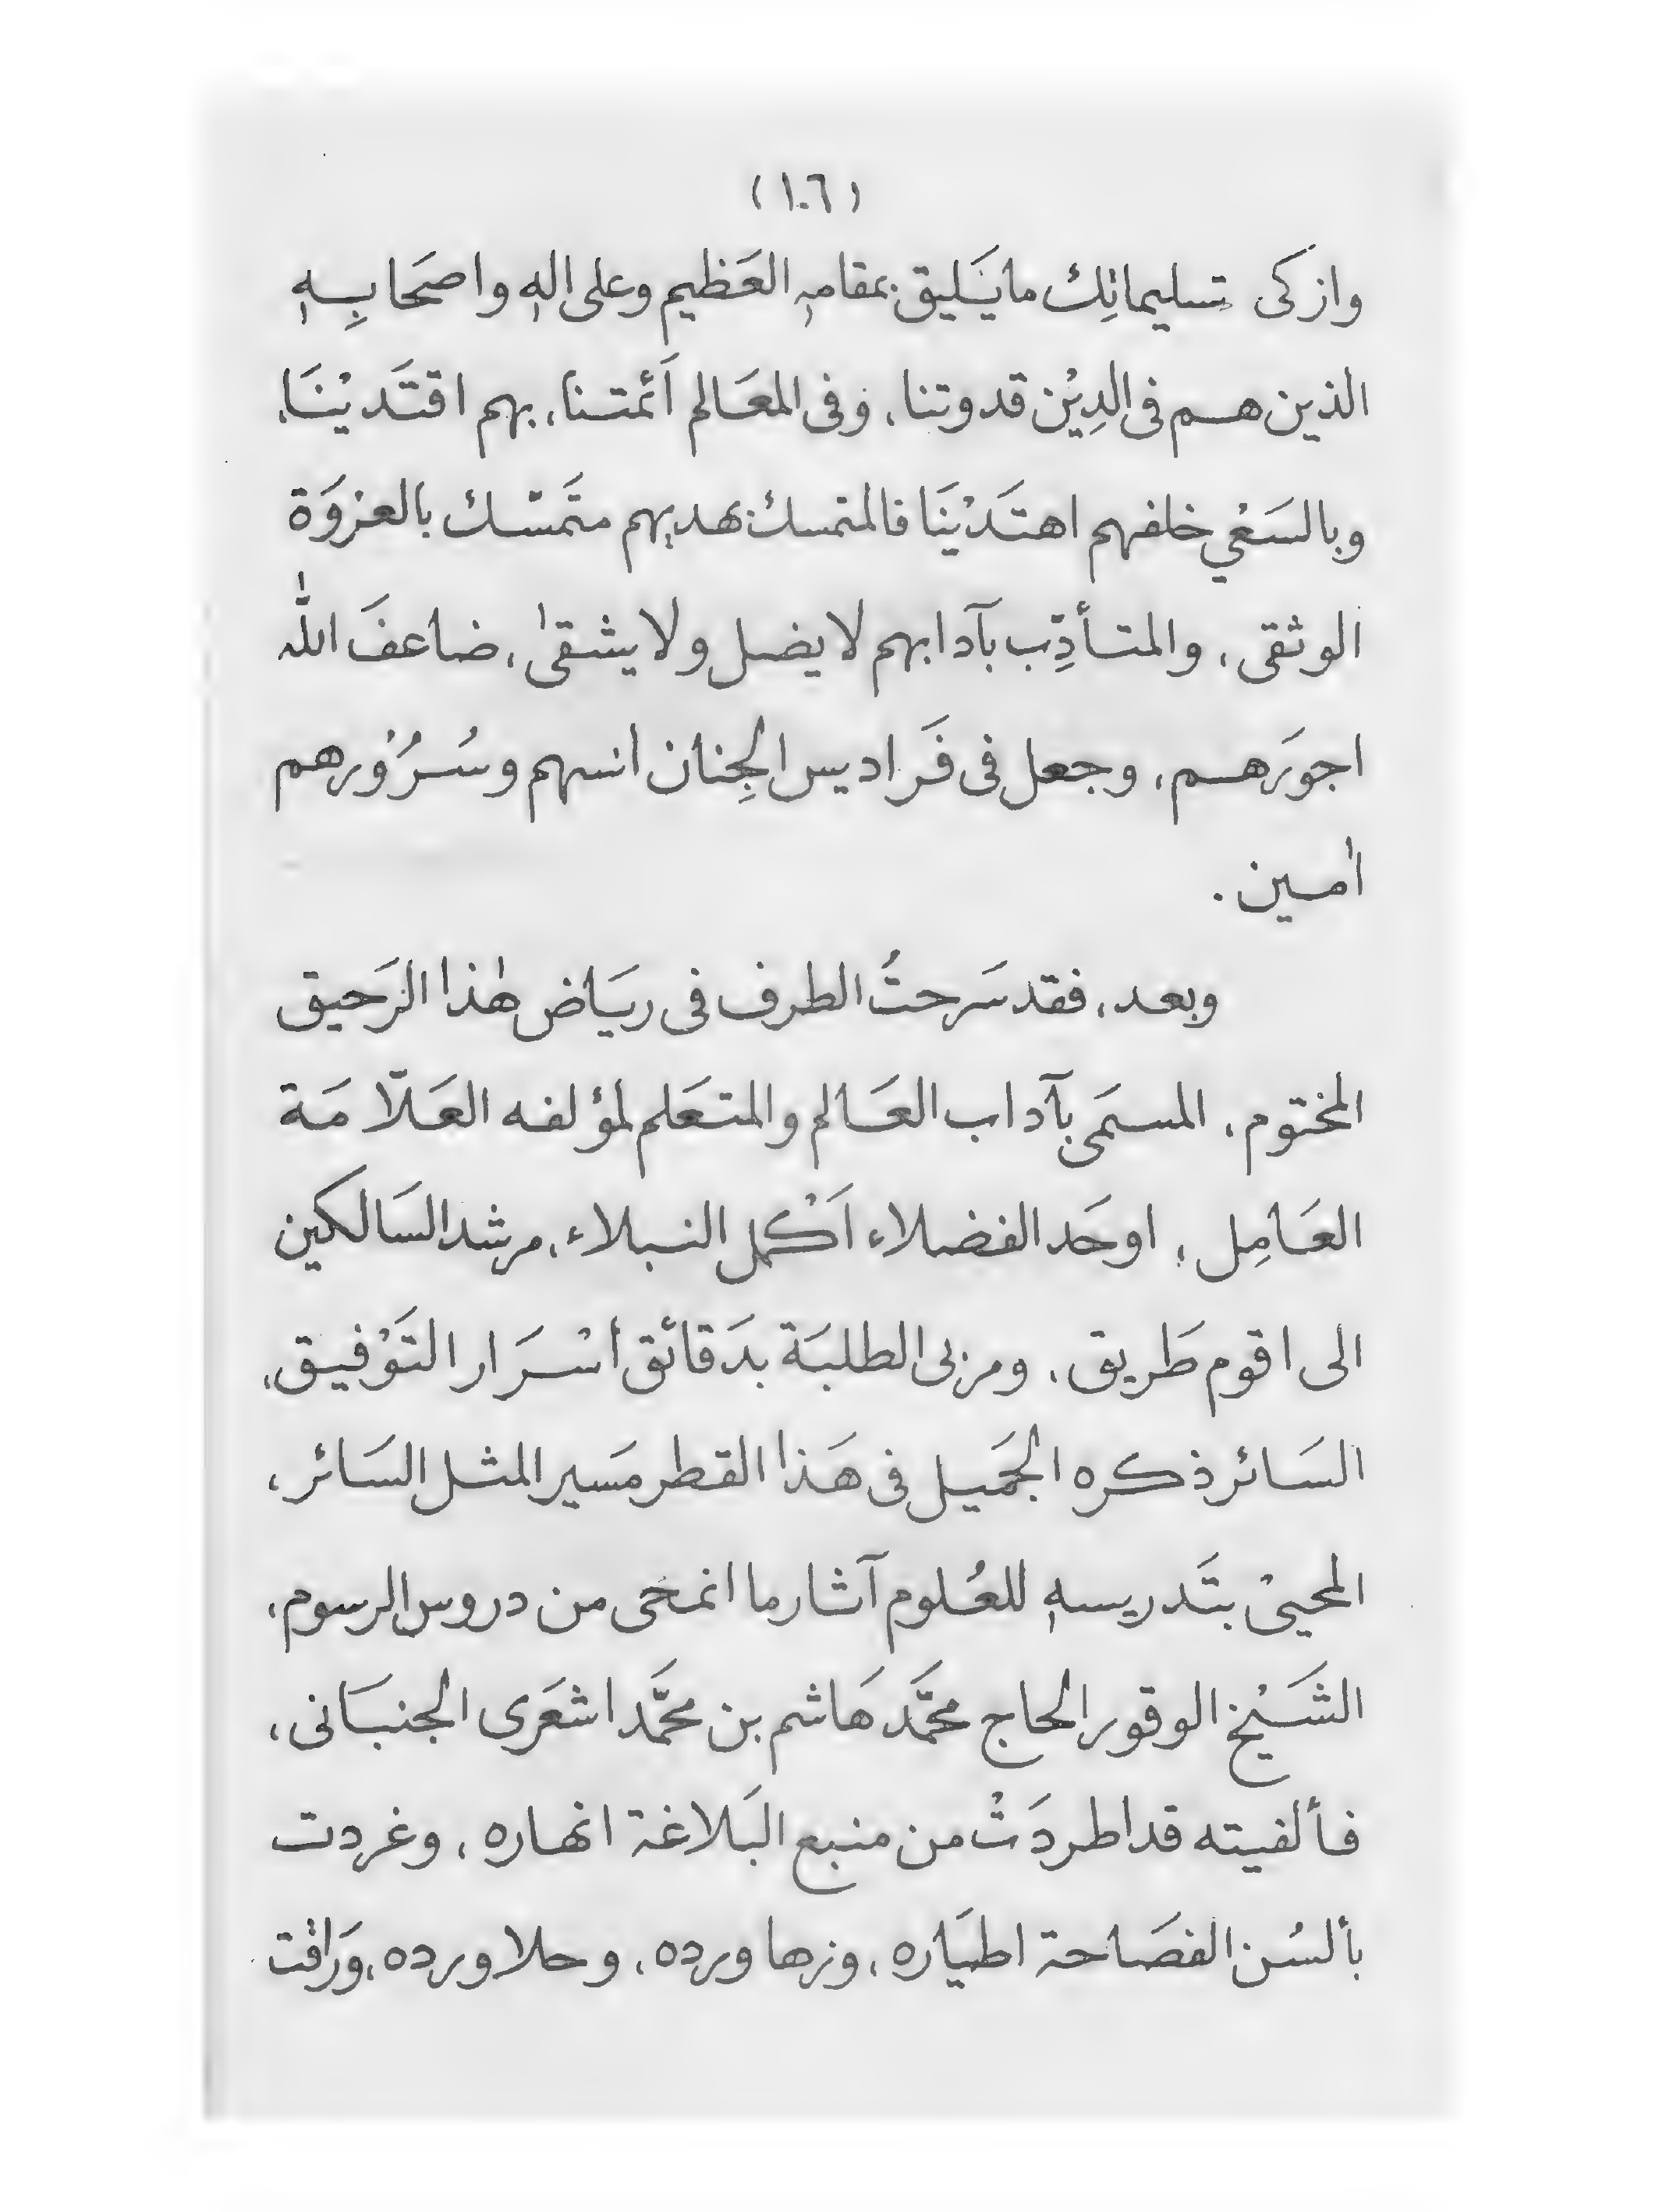 (١٠٦)
وازكى تسليماتِك ما يَليق بمقامهِ العَظيم وعلى الهِ واصحَابِهِ
الذين هم فى الدِيْن قدوتنا، وفى المعَالم اَئمتنا، بهم اقتَديْنَا،
وبالسَعْي خلفهم اهتَدَيْنَا فالمتمسك بهديهم متمَسّك بالعروَة
الوثقى، والمتأدِّب بآدابهم لا يضل ولا يشقىٰ، ضاعفَ اللّٰه
اجورَهم، وجعل فى فَراديس الجِنان انسهم وسُرُوْرهم
اٰمين.
وبعد، فقد سَرحتُ الطرف فى ريَاض هٰذا الرَحيق
المختوم، المسمَى بآداب العَالم والمتعَلم لمؤلفه العَلّامَة
العَامِل، اوحَد الفضلاء اَكْمل النبلاء، مرشد السَالكين
الى اقوم طَريق، ومربى الطلبَة بدَقائق أسْرَار التَوْفيق،
السَائر ذكره الجَميل فى هَذا القطر مَسير المثل السَائر،
المحيىْ بتَدريسهِ للعُلوم آثار ما انمحَى من دروس الرسوم،
الشَيْخ الوقور الحاج محمَّد هَاشم بن محمَّد اشعَرى الجنبَانى،
فألفيته قد اطردَتْ من منبع البَلاغة انهاره، وغردت
بألسُن الفصَاحة اطيَاره، وزها ورده، وحلا ورده، وَراقت